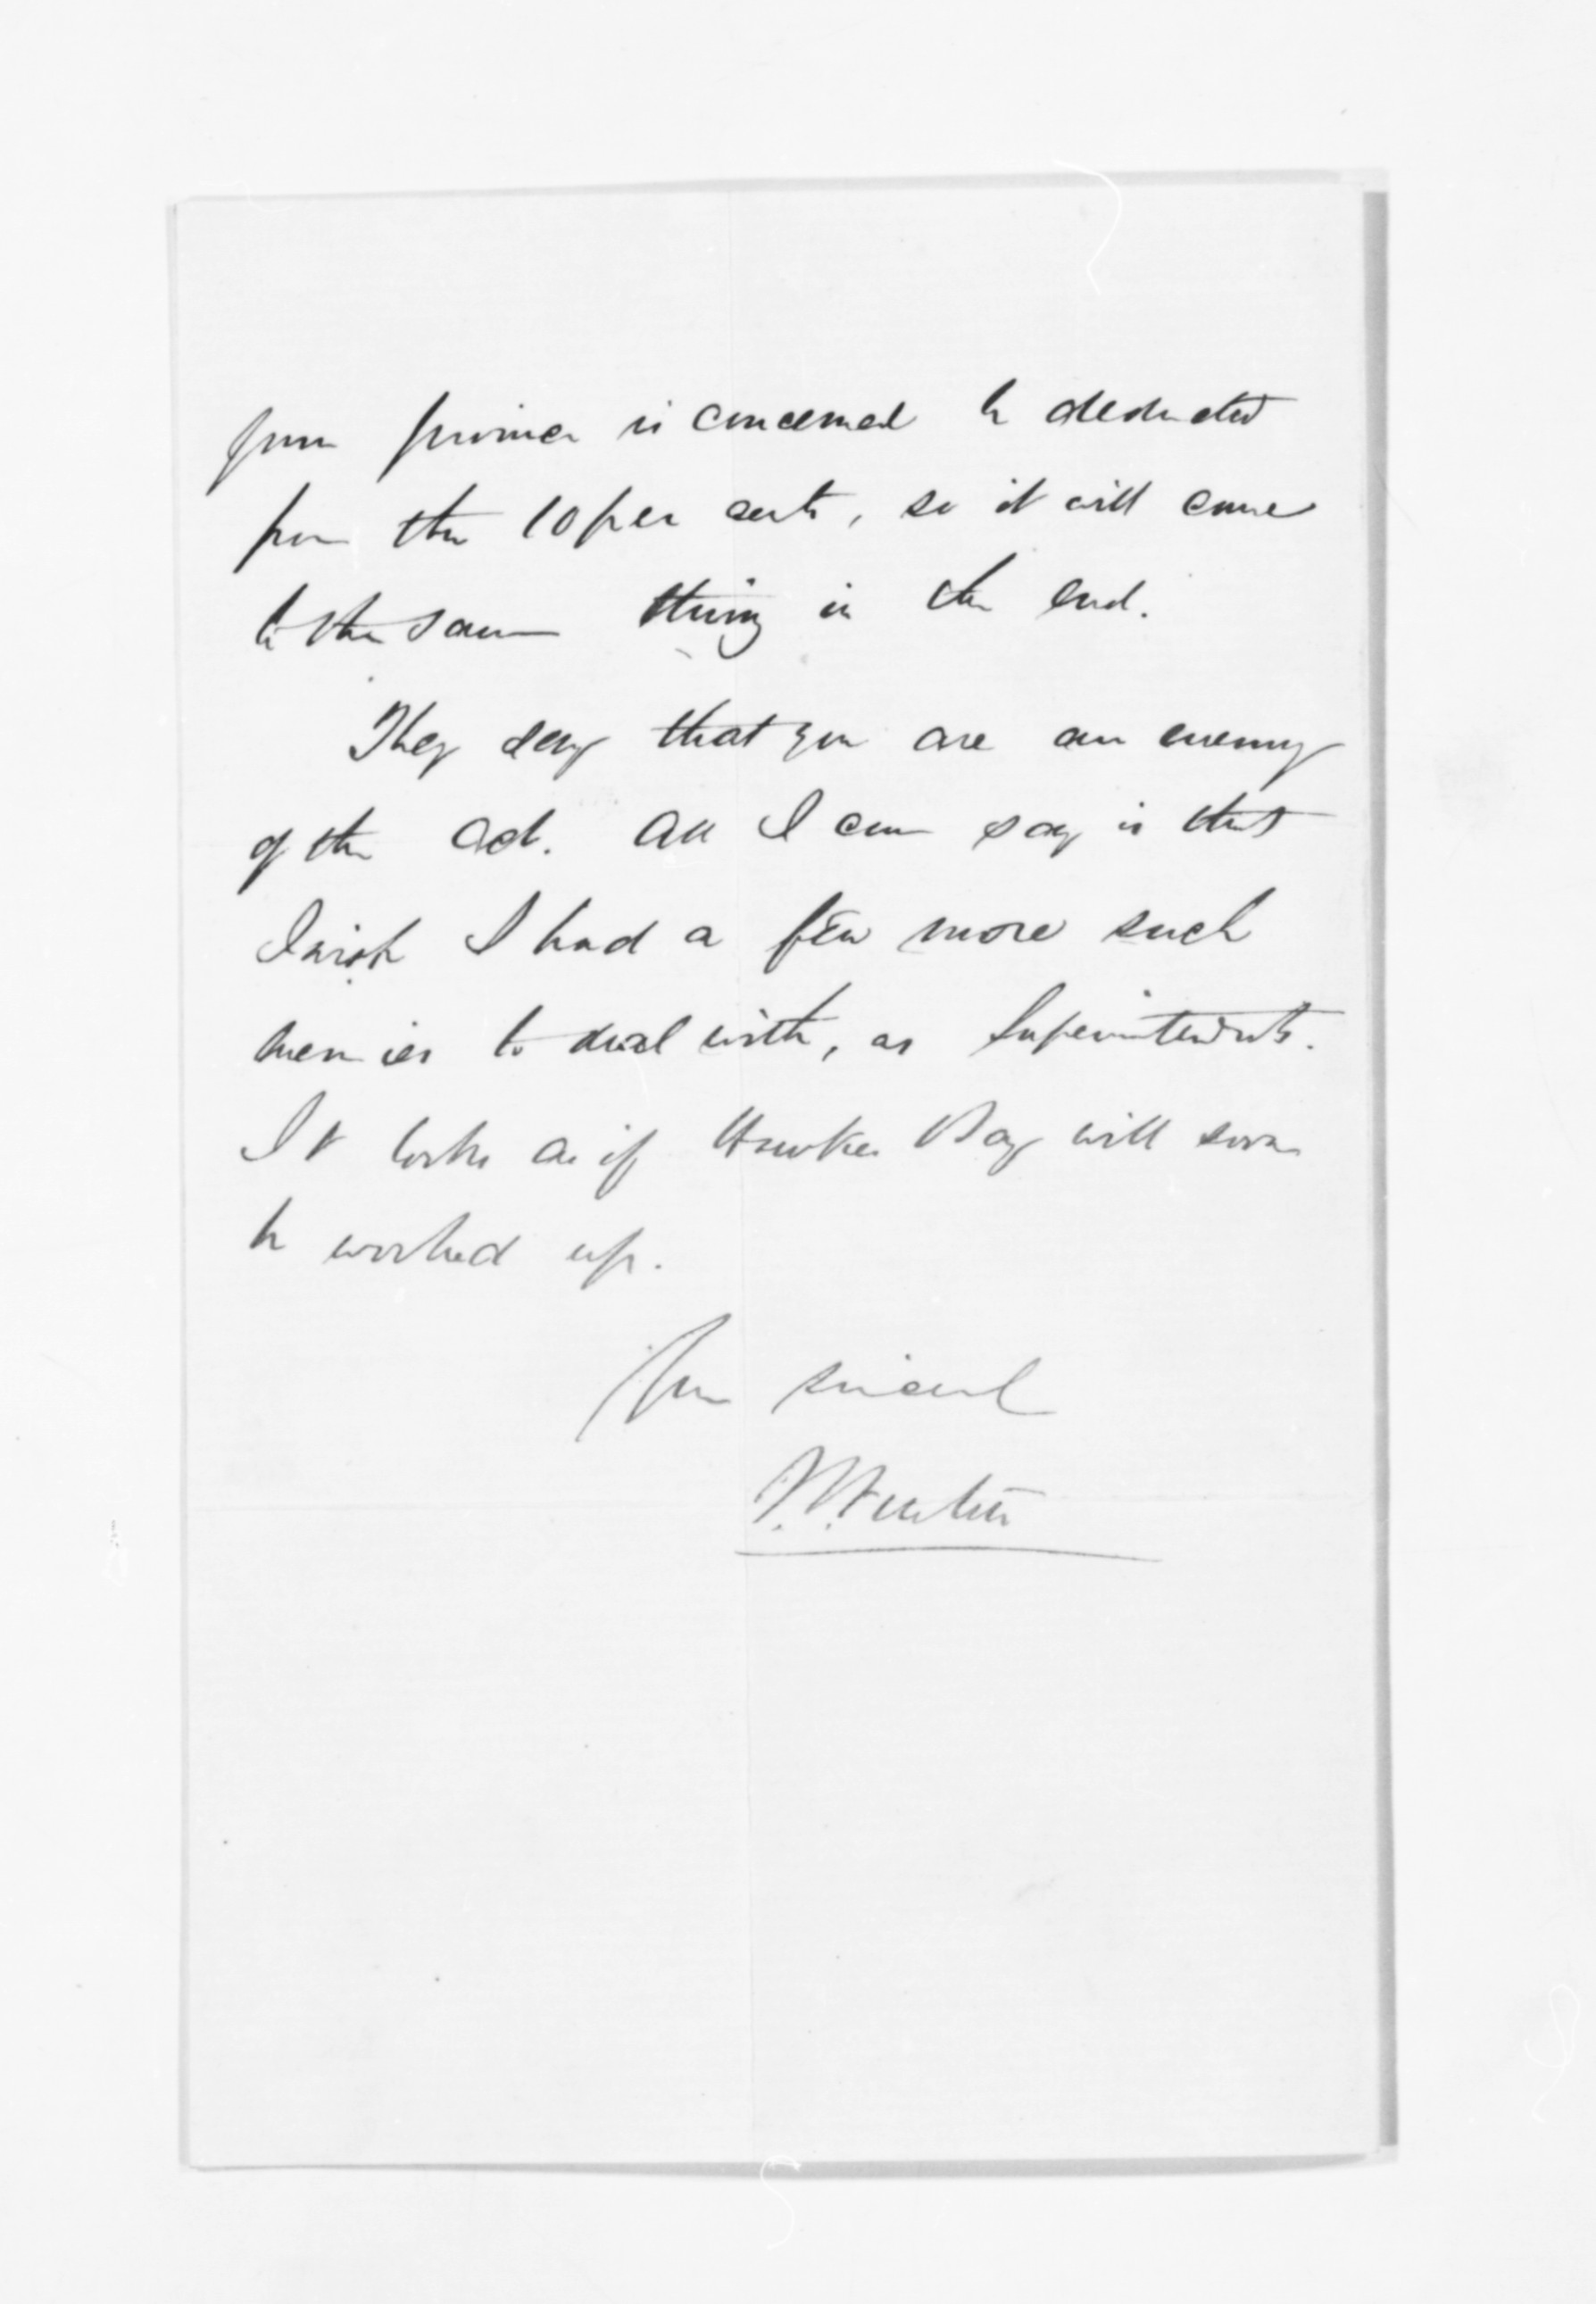 your province is concerned be deducted
from the 10 per cents, so it will come
to the same thing in the end.
They say that you are an enemy
of the Act. All I can say is that
I wish I had a few more such
enemies to deal with, as Superintendents.
It looks as if Hawke's Bay will soon
be worked up.
Yours sincerely